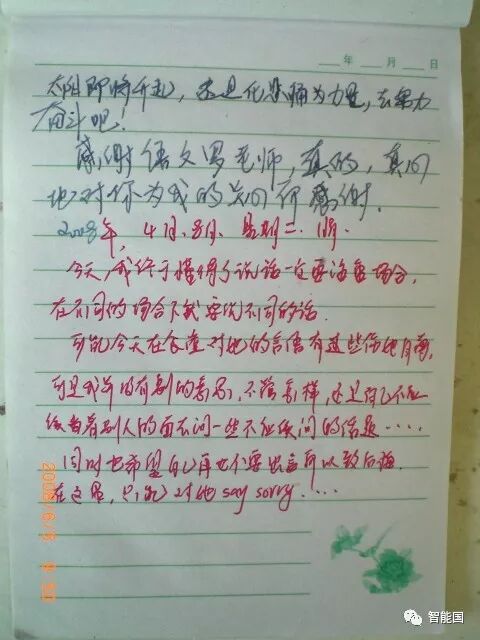 年 月 日
太阳即将升起，还是化悲痛为力量，去努力
奋斗吧！
感谢语文冯老师，真的，真的
地对你为我的关心而感谢.
2008年，4月.8月. 星期二. 晴.
今天，我终于懂得了说话一定要注意场合，
在不同的场合下我要说不同的话.
可能今天在食堂对她的言语有这些伤她自尊，
可是我并没有别的意思，不管怎样，还是自己不应
该当着别人的面去问一些不应该问的话题……
同时也希望自己再也不要出言所以致后悔.
在这里，只能对她 say sorry.…
2008/6/5
智能国